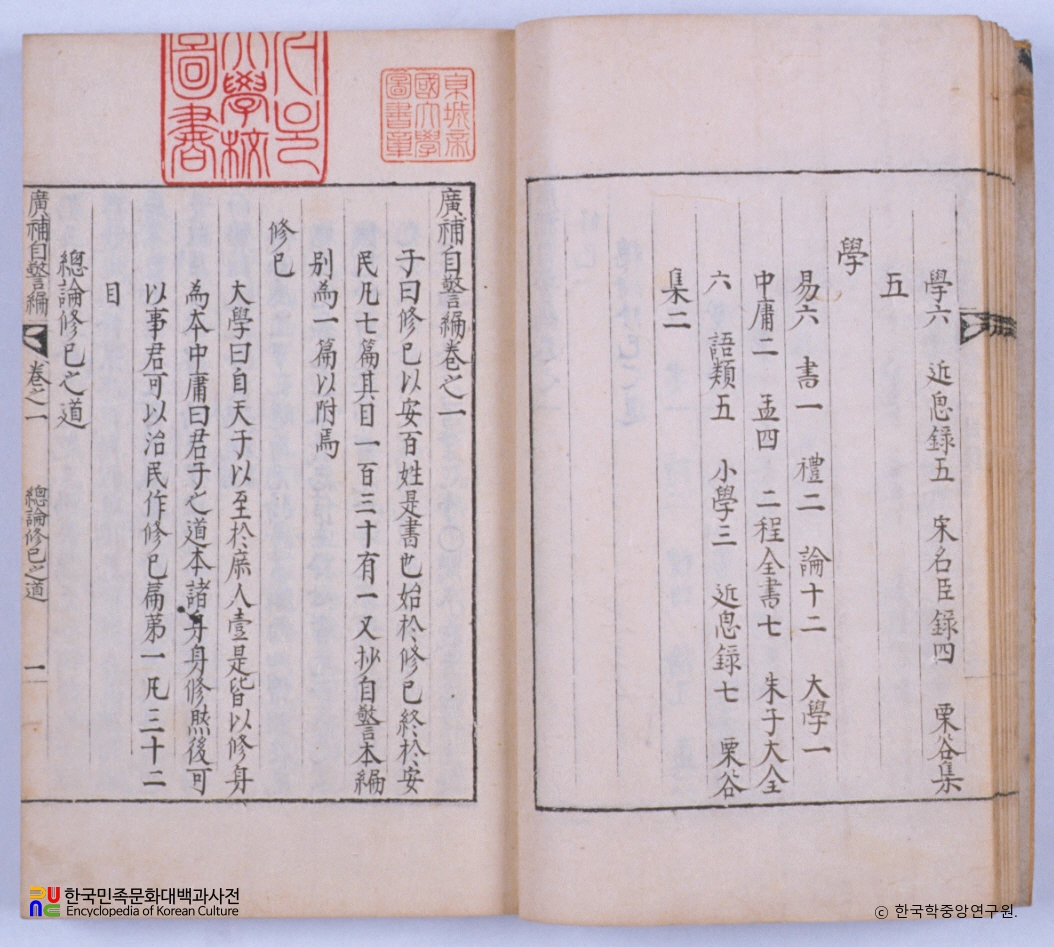 學六 近思録五 宋名臣録四 栗谷集
五
學
易六 書一 禮二 論十二 大學一
中庸二 孟四 二程全書七 朱子大全
六 語類五 小學三 近思録七 栗谷
集二
京城帝
國大學
圖書章
大學校
圖書
廣補自警編卷之一
子曰修己以安百姓是書也始於修己終於安
民凡七篇其目一百三十有一又抄自警本編
别為一篇以附焉
修己
大學曰自天子以至於庶人壹是皆以修身
為本中庸曰君子之道本諸身身修然後可
以事君可以治民作修己篇第一凡三十二
目
總論修己之道
廣補自警編 卷之一 總論修己之道 一
한국민족문화대백과사전
Encyclopedia of Korean Culture
© 한국학중앙연구원.